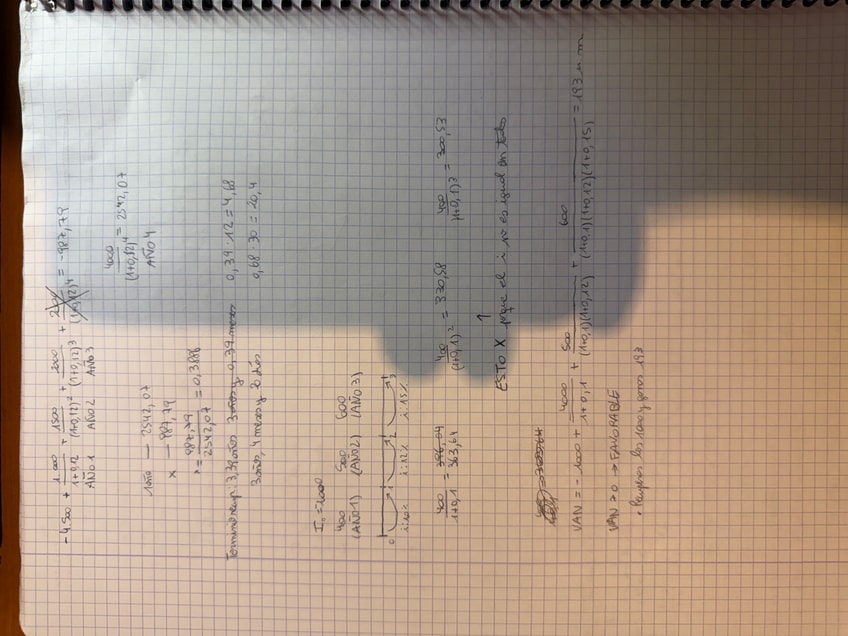 -4.500 + 1.000/(1+0,12) + 1500/(1+0,12)² + 2000/(1+0,12)³ + = -987,79
AÑO 1 AÑO 2 AÑO 3
4000/(1+0,12)⁴ = 2542,07
AÑO 4
1 año — 2542,07
x — 987,79
x = 987,79/2542,07 = 0,3886
3,39 años 3 años y 0,39 meses 0,39 · 12 = 4,68
3 años, 4 meses y 20 días 0,68 · 30 = 20,4
I₀ = 1000
400 500 600
(AÑO 1) (AÑO 2) (AÑO 3)
0 1 2 3
i: 10% i: 12% i: 15%
400/(1+0,1) = 363,64 400/(1+0,1)² = 330,58 400/(1+0,1)³ = 300,53
↑
ESTO X porque el i no es igual en todos
VAN = -1000 + 4000/(1+0,1) + 500/((1+0,1)(1+0,12)) + 600/((1+0,1)(1+0,12)(1+0,15)) = 193 u m
VAN > 0 → FAVORABLE
los 1000 y 193